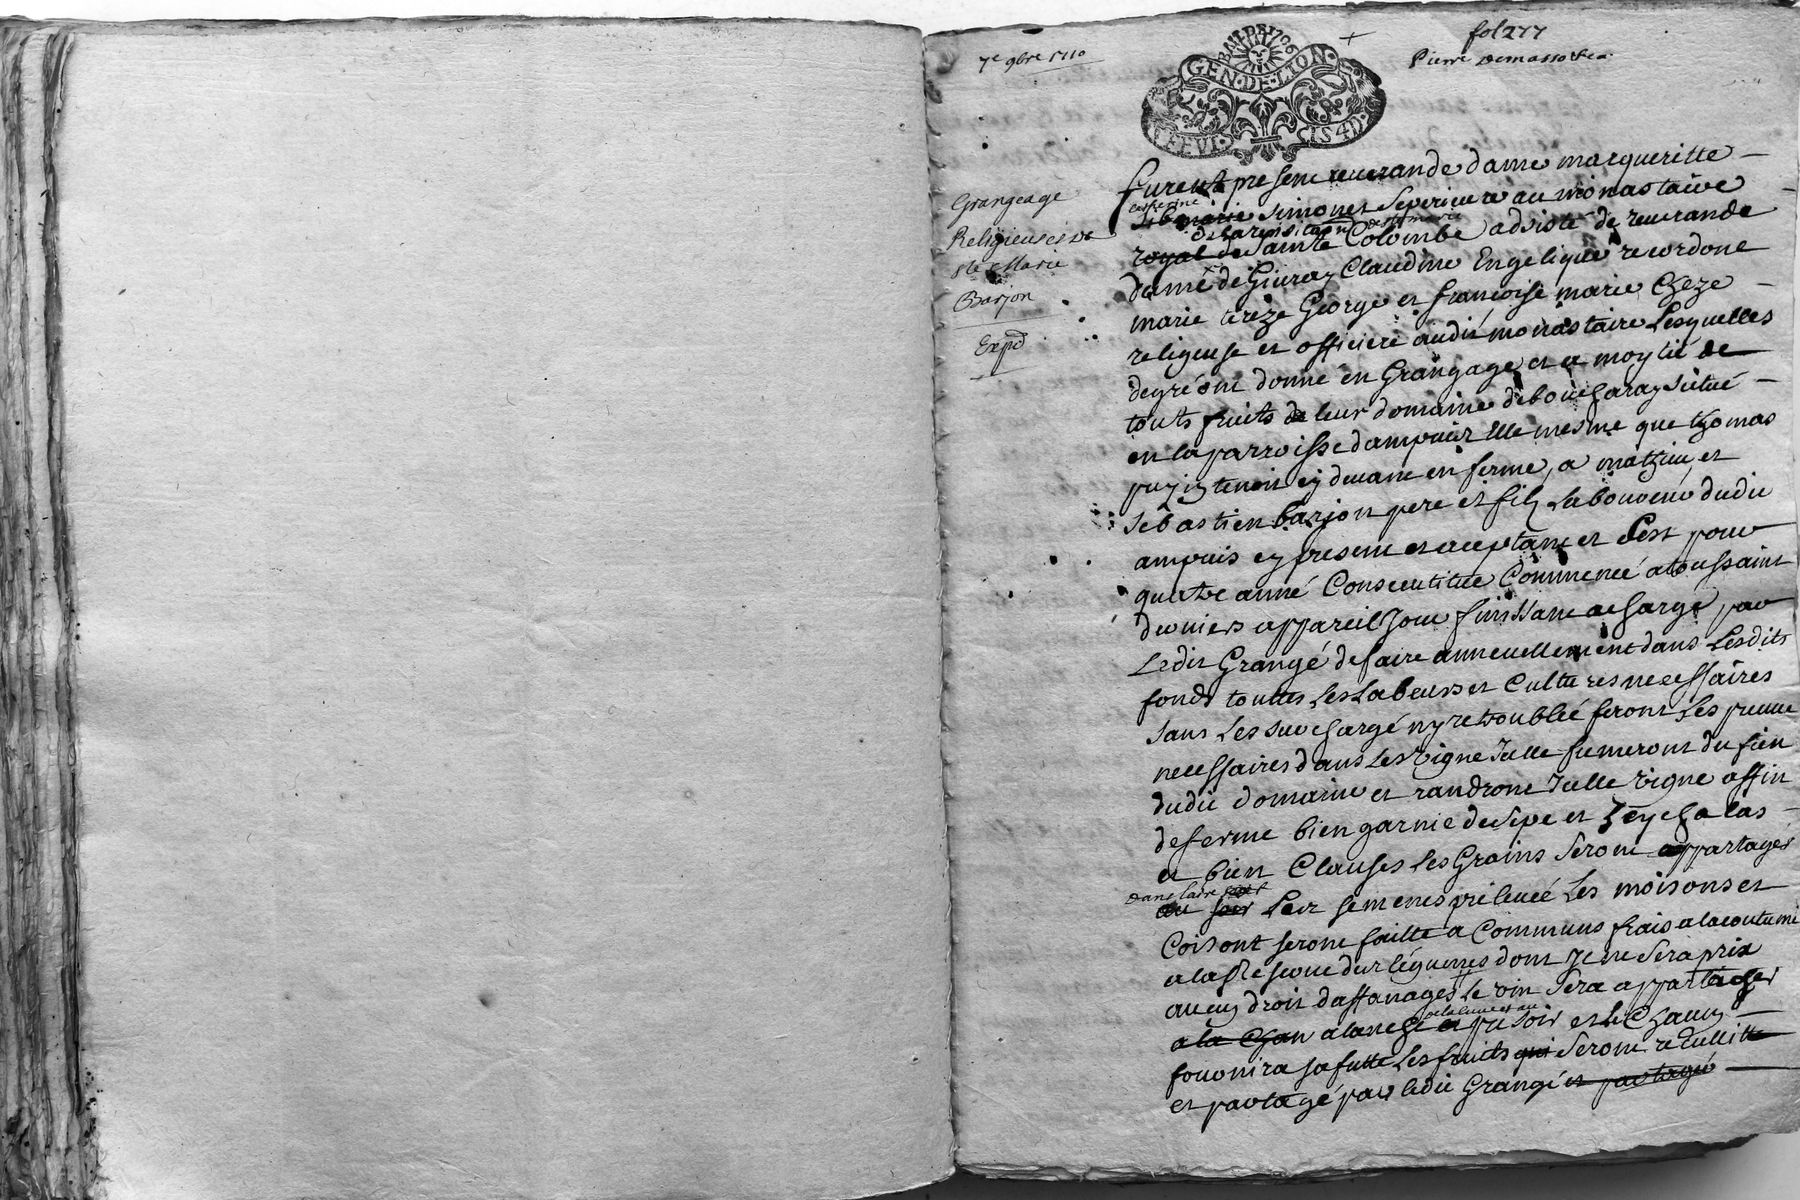 7e 9bre 1710
fol 277
Pierre Demasso
BAIL DE 1706
GEN·DE·LION·
Grangeage
Religieuses de
ste Marie
Barjon
Expd
furent presente reuerande dame margueritte
catherine
simonet superieure au monastaire
de la vizitaon de ste marie
royal de Sainte Colombe adsisté de reuerande
dame de Giuray Claudine Engelique recordone
marie tereze George et francoise marie Cheze
religeuse et officiere audit monastaire Lesquelles
de gré ont donne en Grangage et a moytié de
touts fruits de leur domaine de boucharay situé
en la parroisse dampuiz Elle mesme que thomas
tenoit cy deuant en ferme, a mathieu et
sebastien barjon pere et filz Laboureur dudit
ampuis cy present et aceptant et Cest pour
quatre anné Consecutiue Commencé a toussaint
derniers appareil Jour finissant a charge par
Ledit Grangé de faire annuellement dans Lesdits
fonds touttes Les Labeurs et Cultures necessaires
sans Les surchargé ny retroublé feront Les
necessaires dans Les Vigne Jcelle fumeront du fien
dudit domaine et randront Jcelle Vigne affin
de ferme bien garnie de sepe et Eychalas
et bien Clauses Les Grains seront appartagés
dans laire
au Les semences preleueé Les moisons et
seront faitte a Communs frais a la coutume
a la reserue des légumes dont Je ne sera pris
aucuy droit daffanages Le vin sera appartager
de la cuue et au
a la Chan a lanche et presoir et Chacuy
fournira sa futte Les fruicts qui seront
et partagé par ledit Grangé et partagé